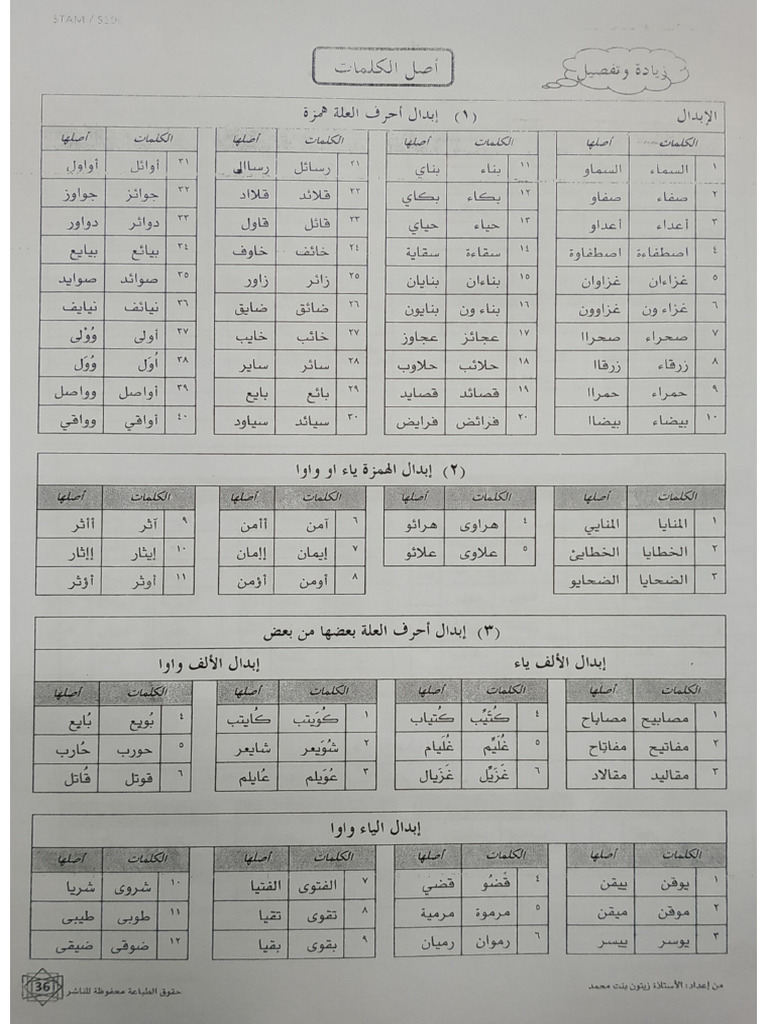 STAM / S3
أصل الكلمات
زيادة وتفصيل
الإبدال (١) إبدال أحرف العلة همزة
الكلمات أصلها الكلمات أصلها الكلمات أصلها الكلمات أصلها
١ السماء السماو ١١ بناء بناي ٢١ رسائل رساال ٣١ أوائل أواول
٢ صفاء صفاو ١٢ بكاء بكاي ٢٢ قلائد قلااد ٣٢ جوائز جواوز
٣ أعداء أعداو ١٣ حياء حياي ٢٣ قائل قاول ٣٣ دوائر دواور
٤ اصطفاءة اصطفاوة ١٤ سقاءة سقاية ٢٤ خائف خاوف ٣٤ بيائع بيايع
٥ غزاءان غزاوان ١٥ بناءان بنايان ٢٥ زائر زاور ٣٥ صوائد صوايد
٦ غزاء ون غزاوون ١٦ بناء ون بنايون ٢٦ ضائق ضايق ٣٦ نيائف نيايف
٧ صحراء صحراا ١٧ عجائز عجاوز ٢٧ خائب خايب ٣٧ أولى وُوْلى
٨ زرقاء زرقاا ١٨ حلائب حلاوب ٢٨ سائر ساير ٣٨ أُوَل وُوَل
٩ حمراء حمراا ١٩ قصائد قصايد ٢٩ بائع بايع ٣٩ أواصل وواصل
١٠ بيضاء بيضاا ٢٠ فرائض فرايض ٣٠ سيائد سياود ٤٠ أواقي وواقي
(٢) إبدال الهمزة ياء او واوا
الكلمات أصلها الكلمات أصلها الكلمات أصلها الكلمات أصلها
١ المنايا المنايي ٤ هراوى هرائو ٦ آمن أأمن ٩ آثر أأثر
٢ الخطايا الخطايئ ٥ علاوى علائو ٧ إيمان إإمان ١٠ إيثار إإثار
٣ الضحايا الضحايو ٨ أومن أؤمن ١١ أوثر أؤثر
(٣) إبدال أحرف العلة بعضها من بعض
إبدال الألف ياء إبدال الألف واوا
الكلمات أصلها الكلمات أصلها الكلمات أصلها الكلمات أصلها
١ مصابيح مصاباح ٤ كُتَيِّب كُتياب ١ كُوَيتب كُايتب ٤ بُويع بُايع
٢ مفاتيح مفاتاح ٥ غُلَيِّم غُليام ٢ شُوَيعر شايعر ٥ حورب حُارب
٣ مقاليد مقالاد ٦ غَزَيِّل غَزَيال ٣ عُوَيلم عُايلم ٦ قوتل قُاتل
إبدال الياء واوا
الكلمات أصلها الكلمات أصلها الكلمات أصلها الكلمات أصلها
١ يوقن ييقن ٤ قُضُو قضي ٧ الفتوى الفتيا ١٠ شروى شريا
٢ موقن ميقن ٥ مرموة مرمية ٨ تقوى تقيا ١١ طوبى طيبى
٣ يوسر ييسر ٦ رموان رميان ٩ بقوى بقيا ١٢ ضوقى ضيقى
من إعداد: الأستاذة زيتون بنت محمد
حقوق الطباعة محفوظة للناشر 36